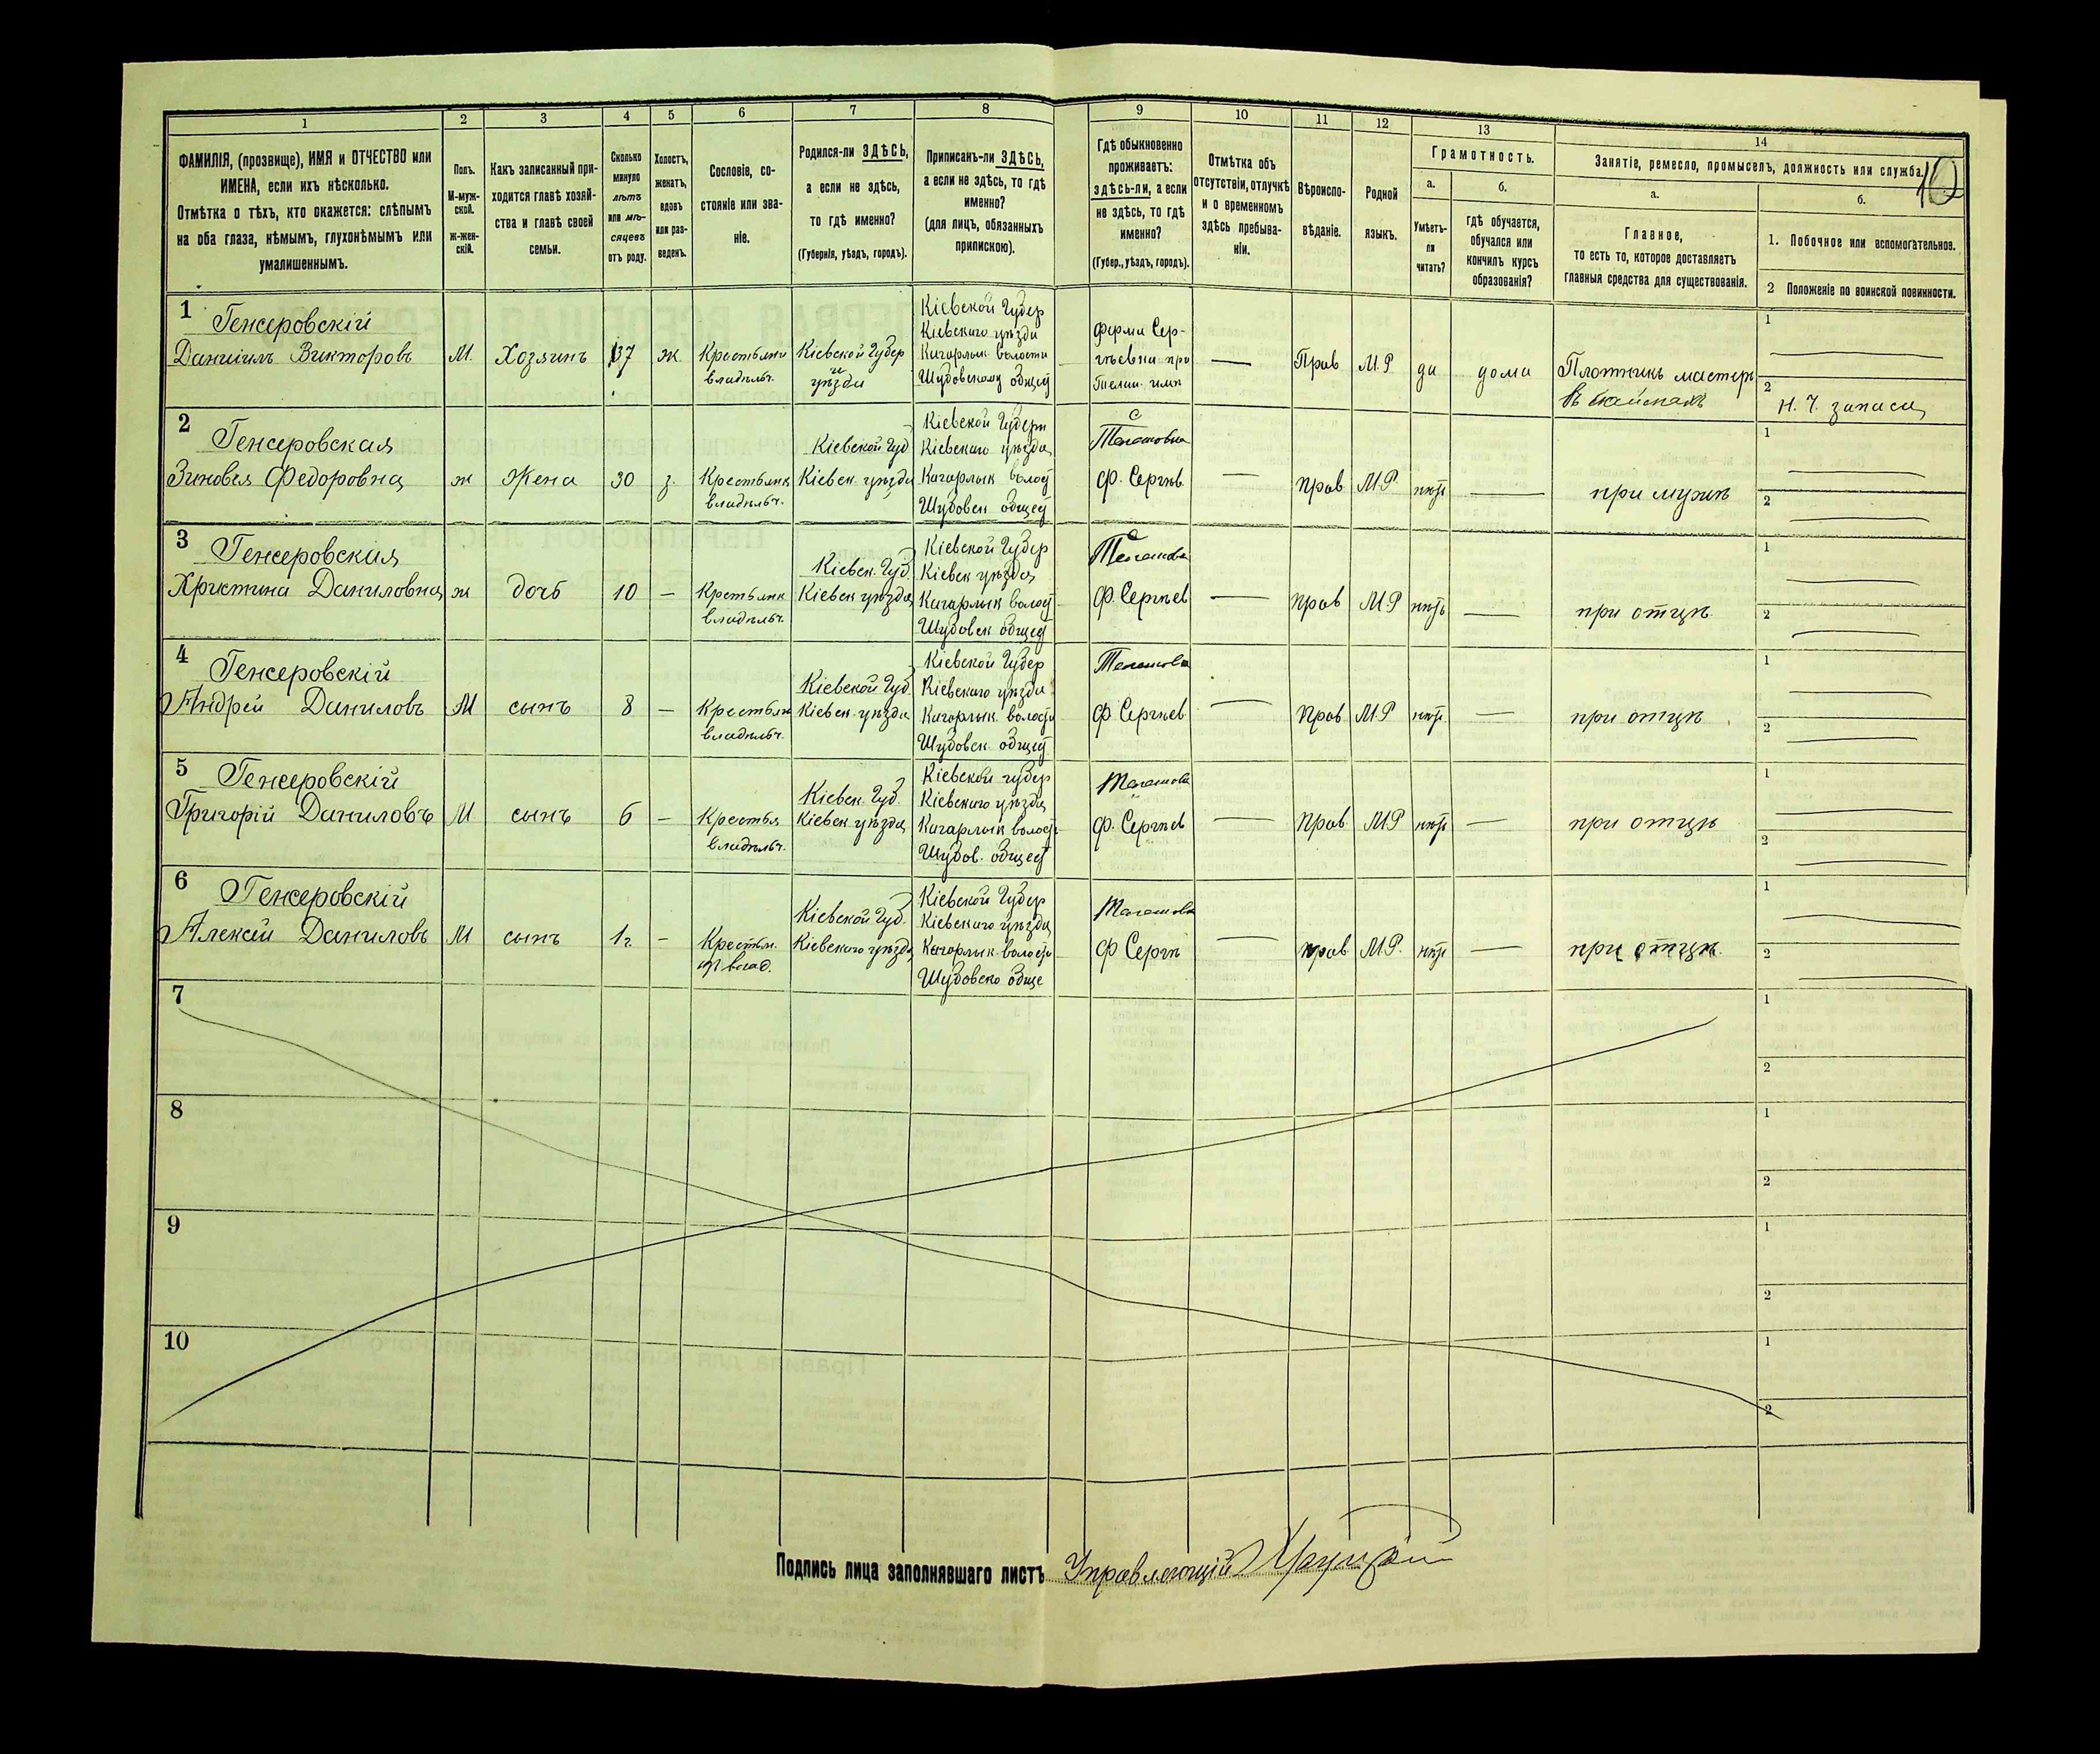 10
1 2 3 4 5 6 7 8 9 10 11 12 13 14
ФАМИЛІЯ, (прозвище), ИМЯ и ОТЧЕСТВО или
ИМЕНА, если ихъ нѣсколько.
Отмѣтка о тѣхъ, кто окажется: слѣпымъ
на оба глаза, нѣмымъ, глухонѣмымъ или
умалишеннымъ.
Полъ.
М-муж-
ской.
Ж-жен-
скій.
Какъ записанный при-
ходится главѣ хозяй-
ства и главѣ своей
семьи.
Сколько
минуло
лѣтъ
или мѣ-
сяцевъ
отъ роду.
Холостъ,
женатъ,
вдовъ
или раз-
веденъ.
Сословіе, со-
стояніе или зва-
ніе.
Родился-ли ЗДѢСЬ,
а если не здѣсь,
то гдѣ именно?
(Губернія, уѣздъ, городъ).
Приписанъ-ли ЗДѢСЬ,
а если не здѣсь, то гдѣ
именно?
(для лицъ, обязанныхъ
припискою).
Гдѣ обыкновенно
проживаетъ:
здѣсь-ли, а если
не здѣсь, то гдѣ
именно?
(Губер., уѣздъ, городъ).
Отмѣтка объ
отсутствіи, отлучкѣ
и о временномъ
здѣсь пребыва-
ніи.
Вѣроиспо-
вѣданіе.
Родной
языкъ.
Грамотность.
а.
Умѣетъ-
ли
читать?
б.
гдѣ обучается,
обучался или
кончилъ курсъ
образованія?
Занятіе, ремесло, промыселъ, должность или служба.
а.
Главное,
то есть то, которое доставляетъ
главныя средства для существованія.
б.
1. Побочное или вспомогательное.
2 Положеніе по воинской повинности.
1
Генсеровскій
Даниилъ Викторовъ
М.
Хозяинъ
37
ж
Крестьяни
владѣльч.
Кіевской Губер
и
уѣзда
Кіевской Губер
Кіевскаго уѣзда
Кагарлык волости
Шубовскому общес
ферма Сер-
гѣевка при
—
Прав
М.Р
да
дома
Плотникъ мастеръ
1
2
Н. Ч. запаса
2
Генсеровская
Зиновья Федоровна
ж
Жена
30
з.
Крестьянк
владѣльч.
Кіевской Губ
Кіевск. уѣзда
Кіевской Губерн
Кіевскаго уѣзда
Кагарлык волос
Шубовск общес
ф. Сергѣев
—
прав
М.Р.
нѣт
—
при мужѣ
1
2
3
Генсеровская
Христина Даниловна
ж
дочь
10
—
Крестьянк
владѣльч.
Кіевск. Губ.
Кіевск уѣзда
Кіевской Губер
Кіевск уѣзда
Кагарлык волос
Шубовск общес
ф. Сергѣев
—
прав
М.Р
нѣтъ
—
при отцѣ
1
2
4
Генсеровскій
Андрей Даниловъ
М
сынъ
8
—
Крестьян
владѣльч.
Кіевской Губ.
Кіевск уѣзда
Кіевской Губер
Кіевскаго уѣзда
Кагарлык. волости
Шубовск. общес
ф Сергѣев
—
Прав
М.Р
нѣт
—
при отцѣ
1
2
5
Генсеровскій
Григорій Даниловъ
М
сынъ
6
—
Крестья
владѣльч.
Кіевск. Губ.
Кіевск уѣзда
Кіевской губер
Кіевскаго уѣзда
Кагарлык волост
Шубов. общес
ф. Сергѣев
—
Прав
М.Р
нѣт
—
при отцѣ
1
2
6
Генсеровскій
Алексѣй Даниловъ
М
сынъ
1г.
—
Крестьн.
Кіевской Губ.
Кіевскаго уѣзда
Кіевской Губер
Кіевскаго уѣзда
Кагарлык. волости
Шубовско обще
ф Сергѣ
—
прав
М.Р.
нѣт
—
при отцѣ
1
2
7
1
2
8
1
2
9
1
2
10
1
2
Подпись лица заполнявшаго листъ Управляющій